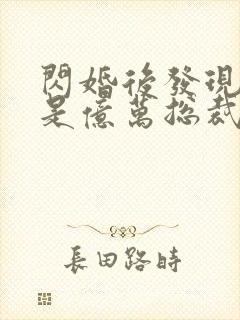 閃婚後發現
是億萬總裁
長田路時